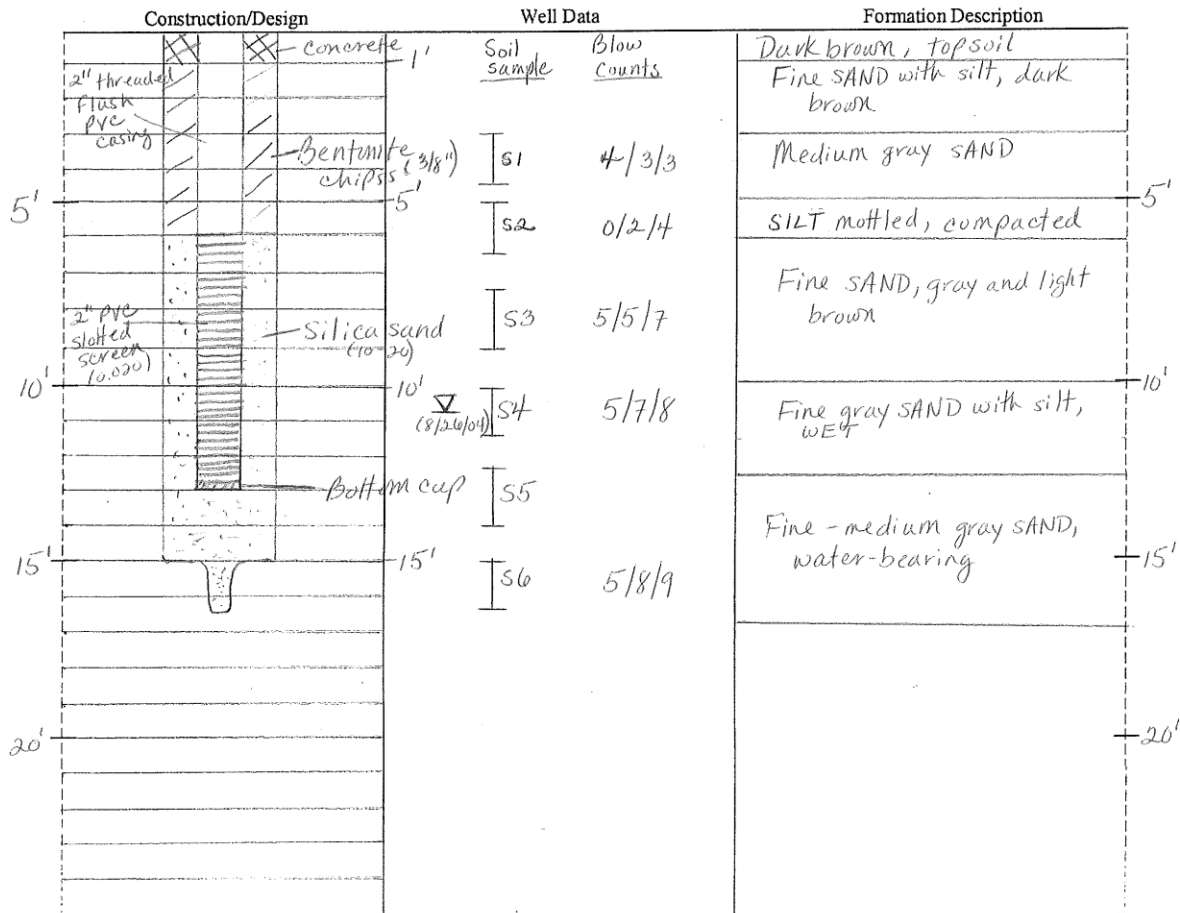 Construction/Design
Well Data
Formation Description
concrete
1'
2" threaded
flush
PVC
casing
Bentonite
chipss (3/8")
5'
5'
2" PVC
slotted
screen
(0.020)
Silica sand
(10-20)
10'
10'
Bottom cap
15'
15'
20'
Soil
sample
Blow
Counts
S1 4/3/3
S2 0/2/4
S3 5/5/7
(8/26/04)
S4 5/7/8
S5
S6 5/8/9
Dark brown, topsoil
Fine SAND with silt, dark
brown
Medium gray SAND
5'
SILT mottled, compacted
Fine SAND, gray and light
brown
10'
Fine gray SAND with silt,
WET
Fine-medium gray SAND,
water-bearing
15'
20'